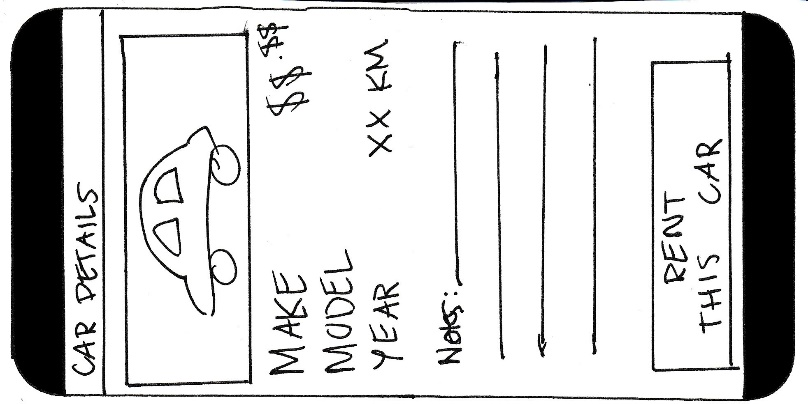 CAR DETAILS
MAKE $$.$$
MODEL
YEAR XX KM
Notes:
RENT
THIS CAR